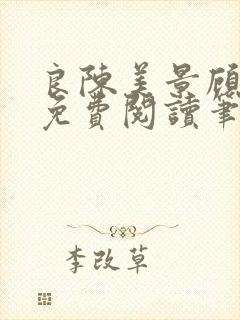 良陳美景顧
免費閱讀筆
李改草